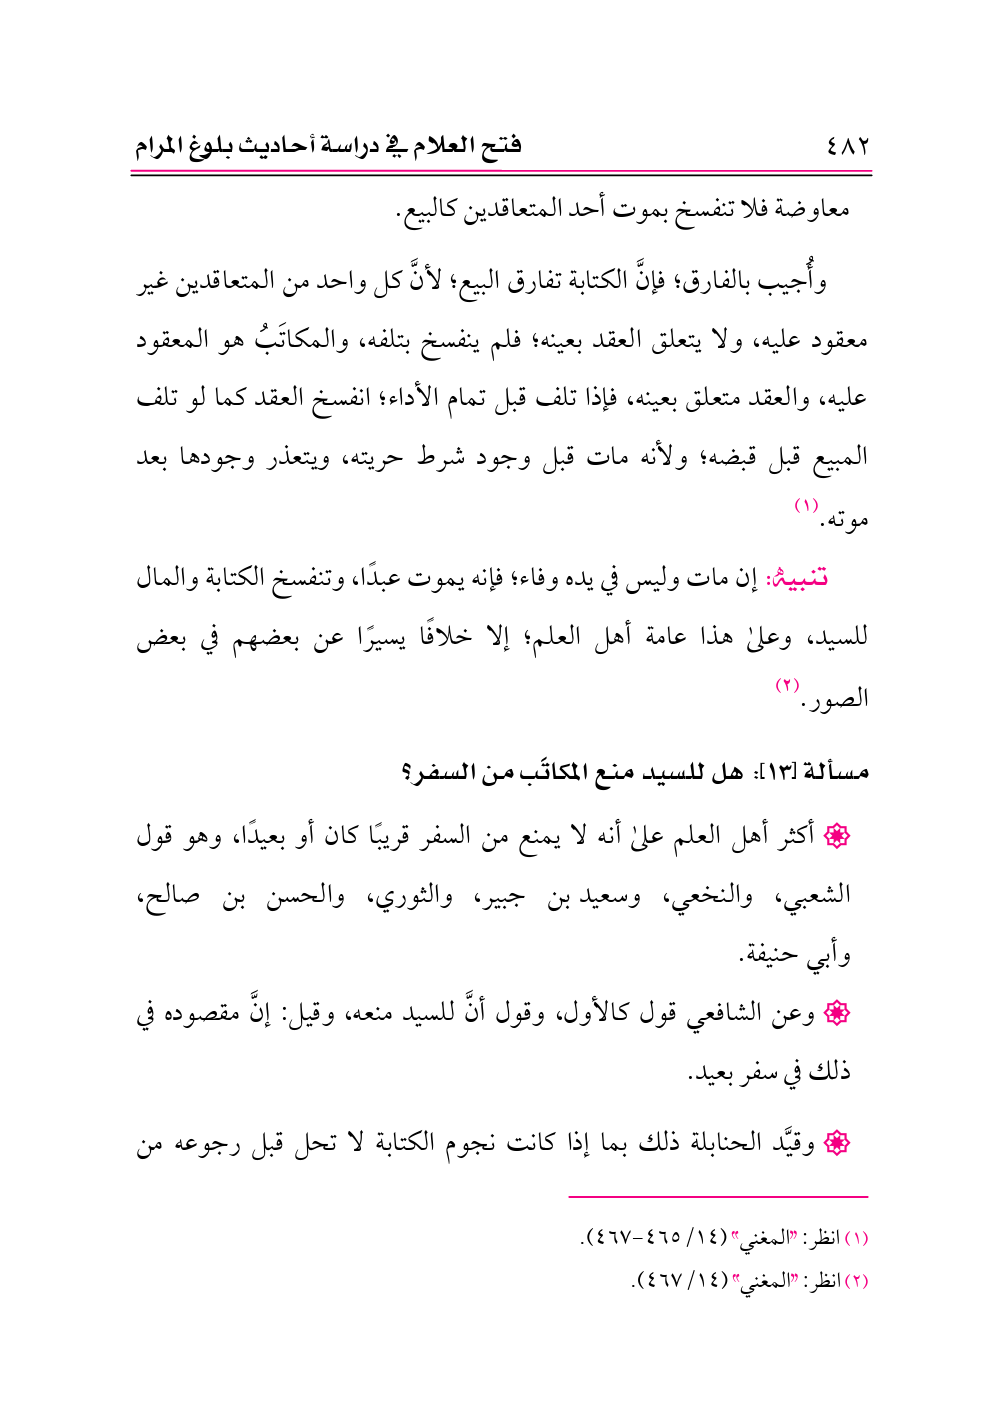 ٤٨٢ فتح العلام في دراسة أحاديث بلوغ المرام
معاوضة فلا تنفسخ بموت أحد المتعاقدين كالبيع.
وأُجيب بالفارق؛ فإنَّ الكتابة تفارق البيع؛ لأنَّ كل واحد من المتعاقدين غير
معقود عليه، ولا يتعلق العقد بعينه؛ فلم ينفسخ بتلفه، والمكاتَبُ هو المعقود
عليه، والعقد متعلق بعينه، فإذا تلف قبل تمام الأداء؛ انفسخ العقد كما لو تلف
المبيع قبل قبضه؛ ولأنه مات قبل وجود شرط حريته، ويتعذر وجودها بعد
موته.(١)
تنبيهٌ: إن مات وليس في يده وفاء؛ فإنه يموت عبدًا، وتنفسخ الكتابة والمال
للسيد، وعلىٰ هذا عامة أهل العلم؛ إلا خلافًا يسيرًا عن بعضهم في بعض
الصور.(٢)
مسألة [١٣]: هل للسيد منع المكاتَب من السفر؟
۞ أكثر أهل العلم علىٰ أنه لا يمنع من السفر قريبًا كان أو بعيدًا، وهو قول
الشعبي، والنخعي، وسعيد بن جبير، والثوري، والحسن بن صالح،
وأبي حنيفة.
۞ وعن الشافعي قول كالأول، وقول أنَّ للسيد منعه، وقيل: إنَّ مقصوده في
ذلك في سفر بعيد.
۞ وقيَّد الحنابلة ذلك بما إذا كانت نجوم الكتابة لا تحل قبل رجوعه من
(١) انظر: "المغني" (١٤/ ٤٦٥-٤٦٧).
(٢) انظر: "المغني" (١٤/ ٤٦٧).